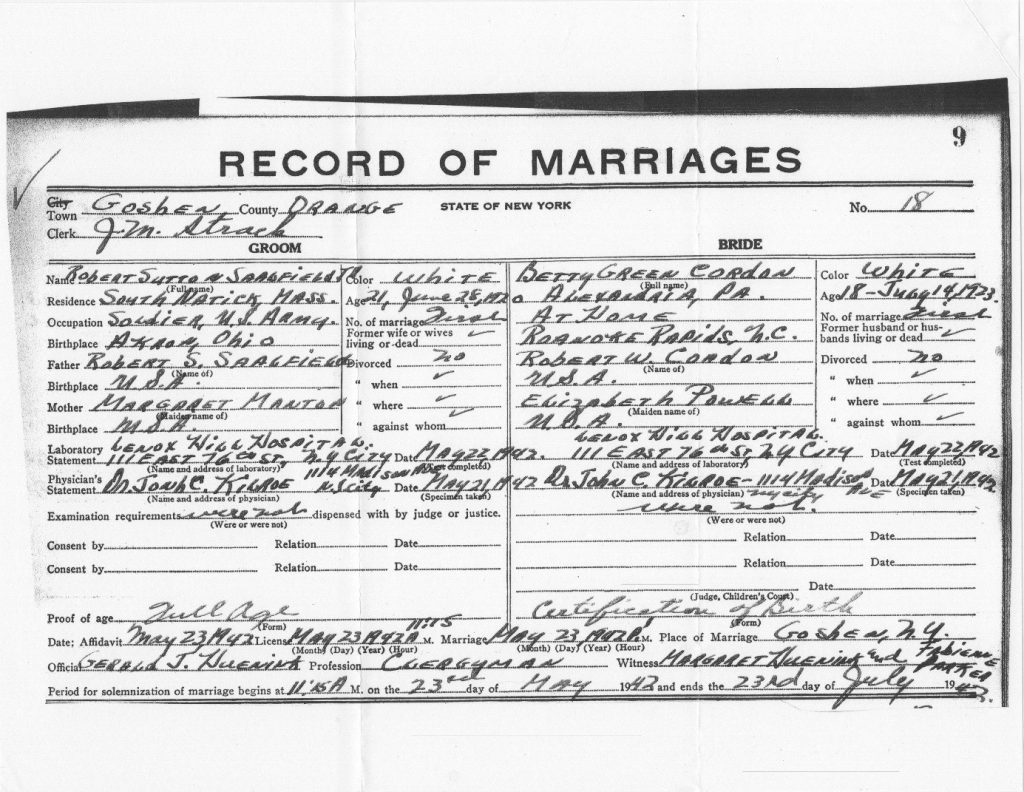 9
RECORD OF MARRIAGES
City
Town Goshen County ORANGE STATE OF NEW YORK No. 18
Clerk J.M. Strack
GROOM BRIDE
Name Robert Sutton Saalfield Jr Color White Betty Green Cordon Color White
(Full name) (Full name)
Residence South Natick, Mass. Age 21, June 28, 1920 Alexandria, PA. Age 18 - July 14, 1923
Occupation Soldier, U.S. Army. No. of marriage First At Home No. of marriage First
Birthplace Akron, Ohio Former wife or wives living or dead ✓ Roanoke Rapids, N.C. Former husband or husbands living or dead ✓
Father Robert S. Saalfield Divorced no Robert W. Cordon Divorced no
(Name of) (Name of)
Birthplace U.S.A. " when ✓ U.S.A. " when ✓
Mother Margaret Manton " where ✓ Elizabeth Powell " where ✓
(Maiden name of) (Maiden name of)
Birthplace U.S.A. " against whom ✓ U.S.A. " against whom ✓
Laboratory Lenox Hill Hospital. Lenox Hill Hospital.
Statement 111 East 76th St, N.Y City Date May 22, 1942. 111 East 76th St N.Y City Date May 22, 1942
(Name and address of laboratory) (Test completed) (Name and address of laboratory) (Test completed)
Physician's Statement Dr. John C. Kilroe 1114 Madison Ave N.Y City Date May 21, 1942 Dr John C. Kilroe - 1114 Madison Ave ny city Date May 21, 1942
(Name and address of physician) (Specimen taken) (Name and address of physician) (Specimen taken)
Examination requirements were not dispensed with by judge or justice. were not.
(Were or were not) (Were or were not)
Consent by Relation Date Relation Date
Consent by Relation Date Relation Date
Date
(Judge, Children's Court)
Proof of age Full Age Certification of Birth
(Form) (Form)
Date; Affidavit May 23 1942 License May 23 1942 11:15 A M. Marriage May 23, 1942 P. M. Place of Marriage Goshen, N.Y.
(Month) (Day) (Year) (Hour) (Month) (Day) (Year) (Hour)
Official Gerald J. Huenink Profession Clergyman Witness Margaret Huenink and Fabienne Parker
Period for solemnization of marriage begins at 11:15 A M. on the 23rd day of May 1942 and ends the 23rd day of July 1942.